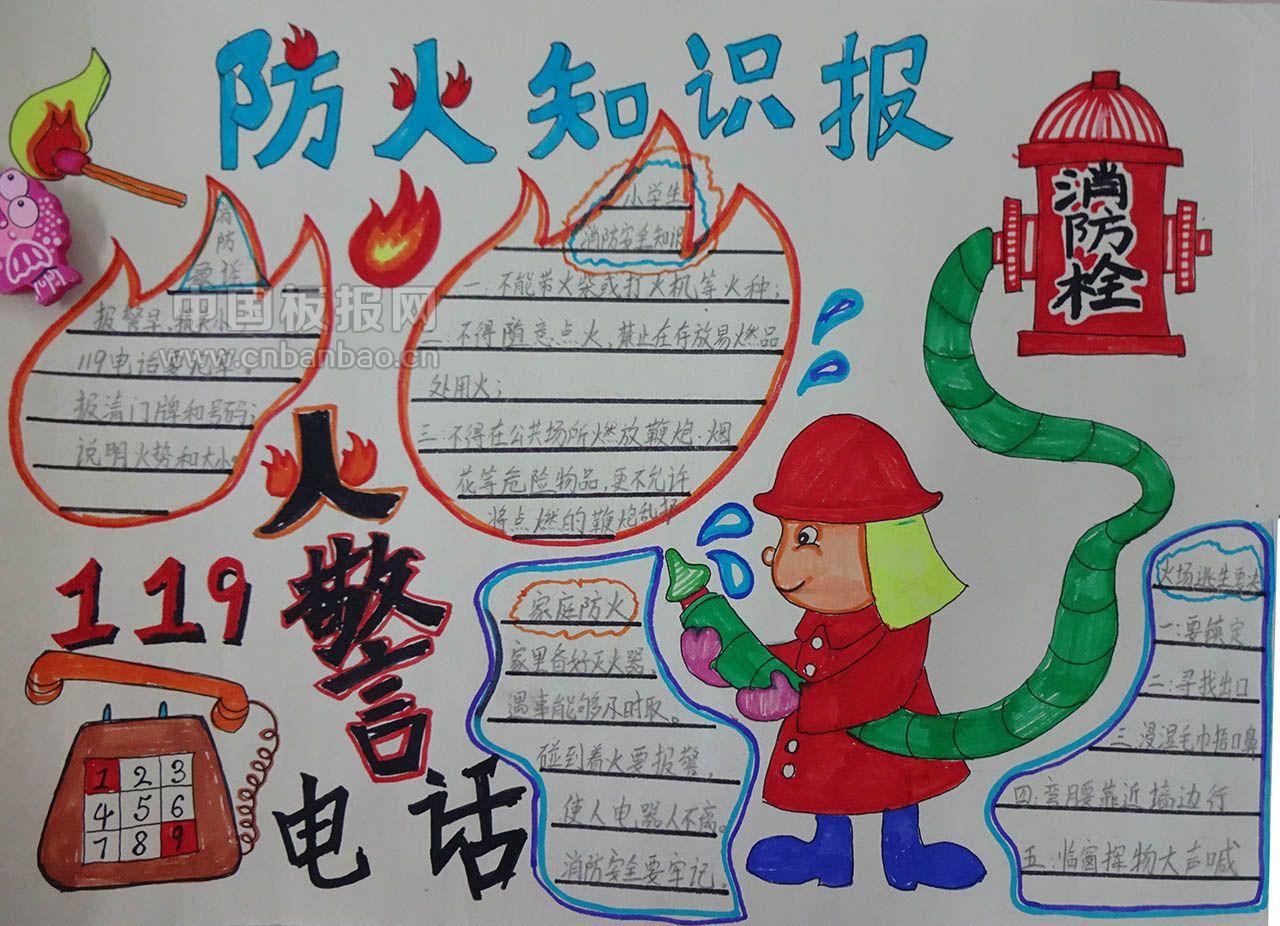 防火知识报
消防
报警早,损失小,
119电话要记牢。
报清门牌和号码;
说明火势和大小。
中国板报网
www.cnbanbao.cn
小学生
消防安全知识
一:不能带火柴或打火机等火种;
二:不得随意点火,禁止在存放易燃品
处用火;
三:不得在公共场所燃放鞭炮:烟
花等危险物品,更不允许
将点燃的鞭炮乱扔
消防栓
火警
119
电话
1 2 3
4 5 6
7 8 9
家庭防火
家里备好灭火器,
遇事能够及时取。
碰到着火要报警,
使人电器人不离。
消防安全要牢记。
火场逃生要决
一:要镇定
二:寻找出口
三:浸湿毛巾捂口鼻
四:弯腰靠近墙边行
五:临窗挥物大声喊